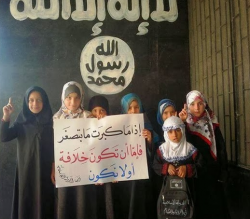 لا إله إلا الله
الله
رسول
محمد
إذا ما كبرت ما بتصغر
فإما أن تكون خلافة
أو لا تكون